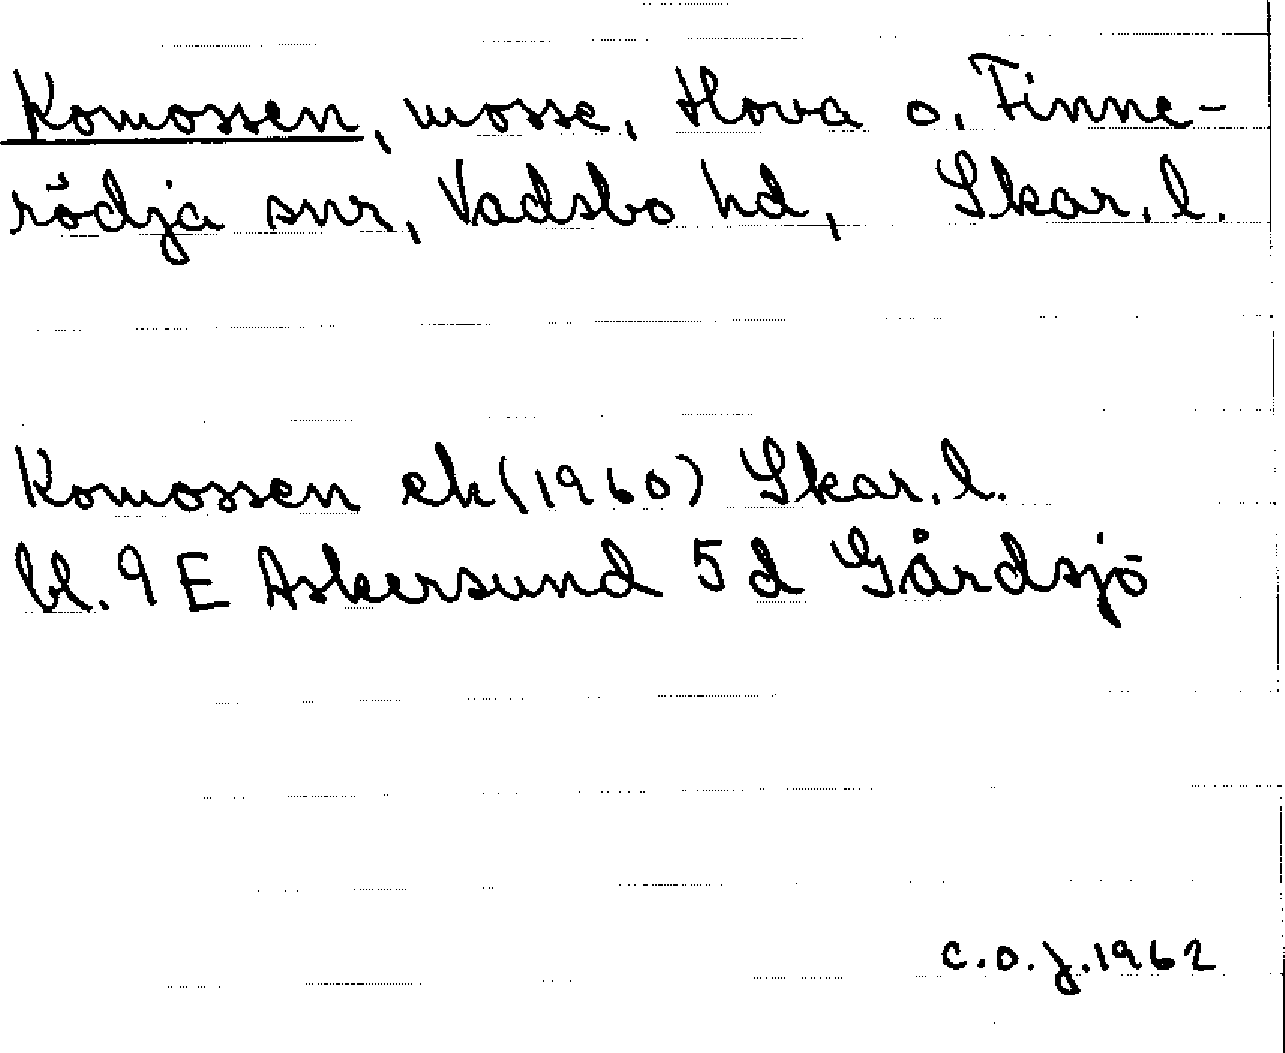 Komossen, mosse, Hova o. Finne-
rödja snr, Vadsbo hd, Skar. l.
Komossen ek (1960) Skar. l.
bl. 9 E Askersund 5 d Gårdsjö
C.O.J. 1962